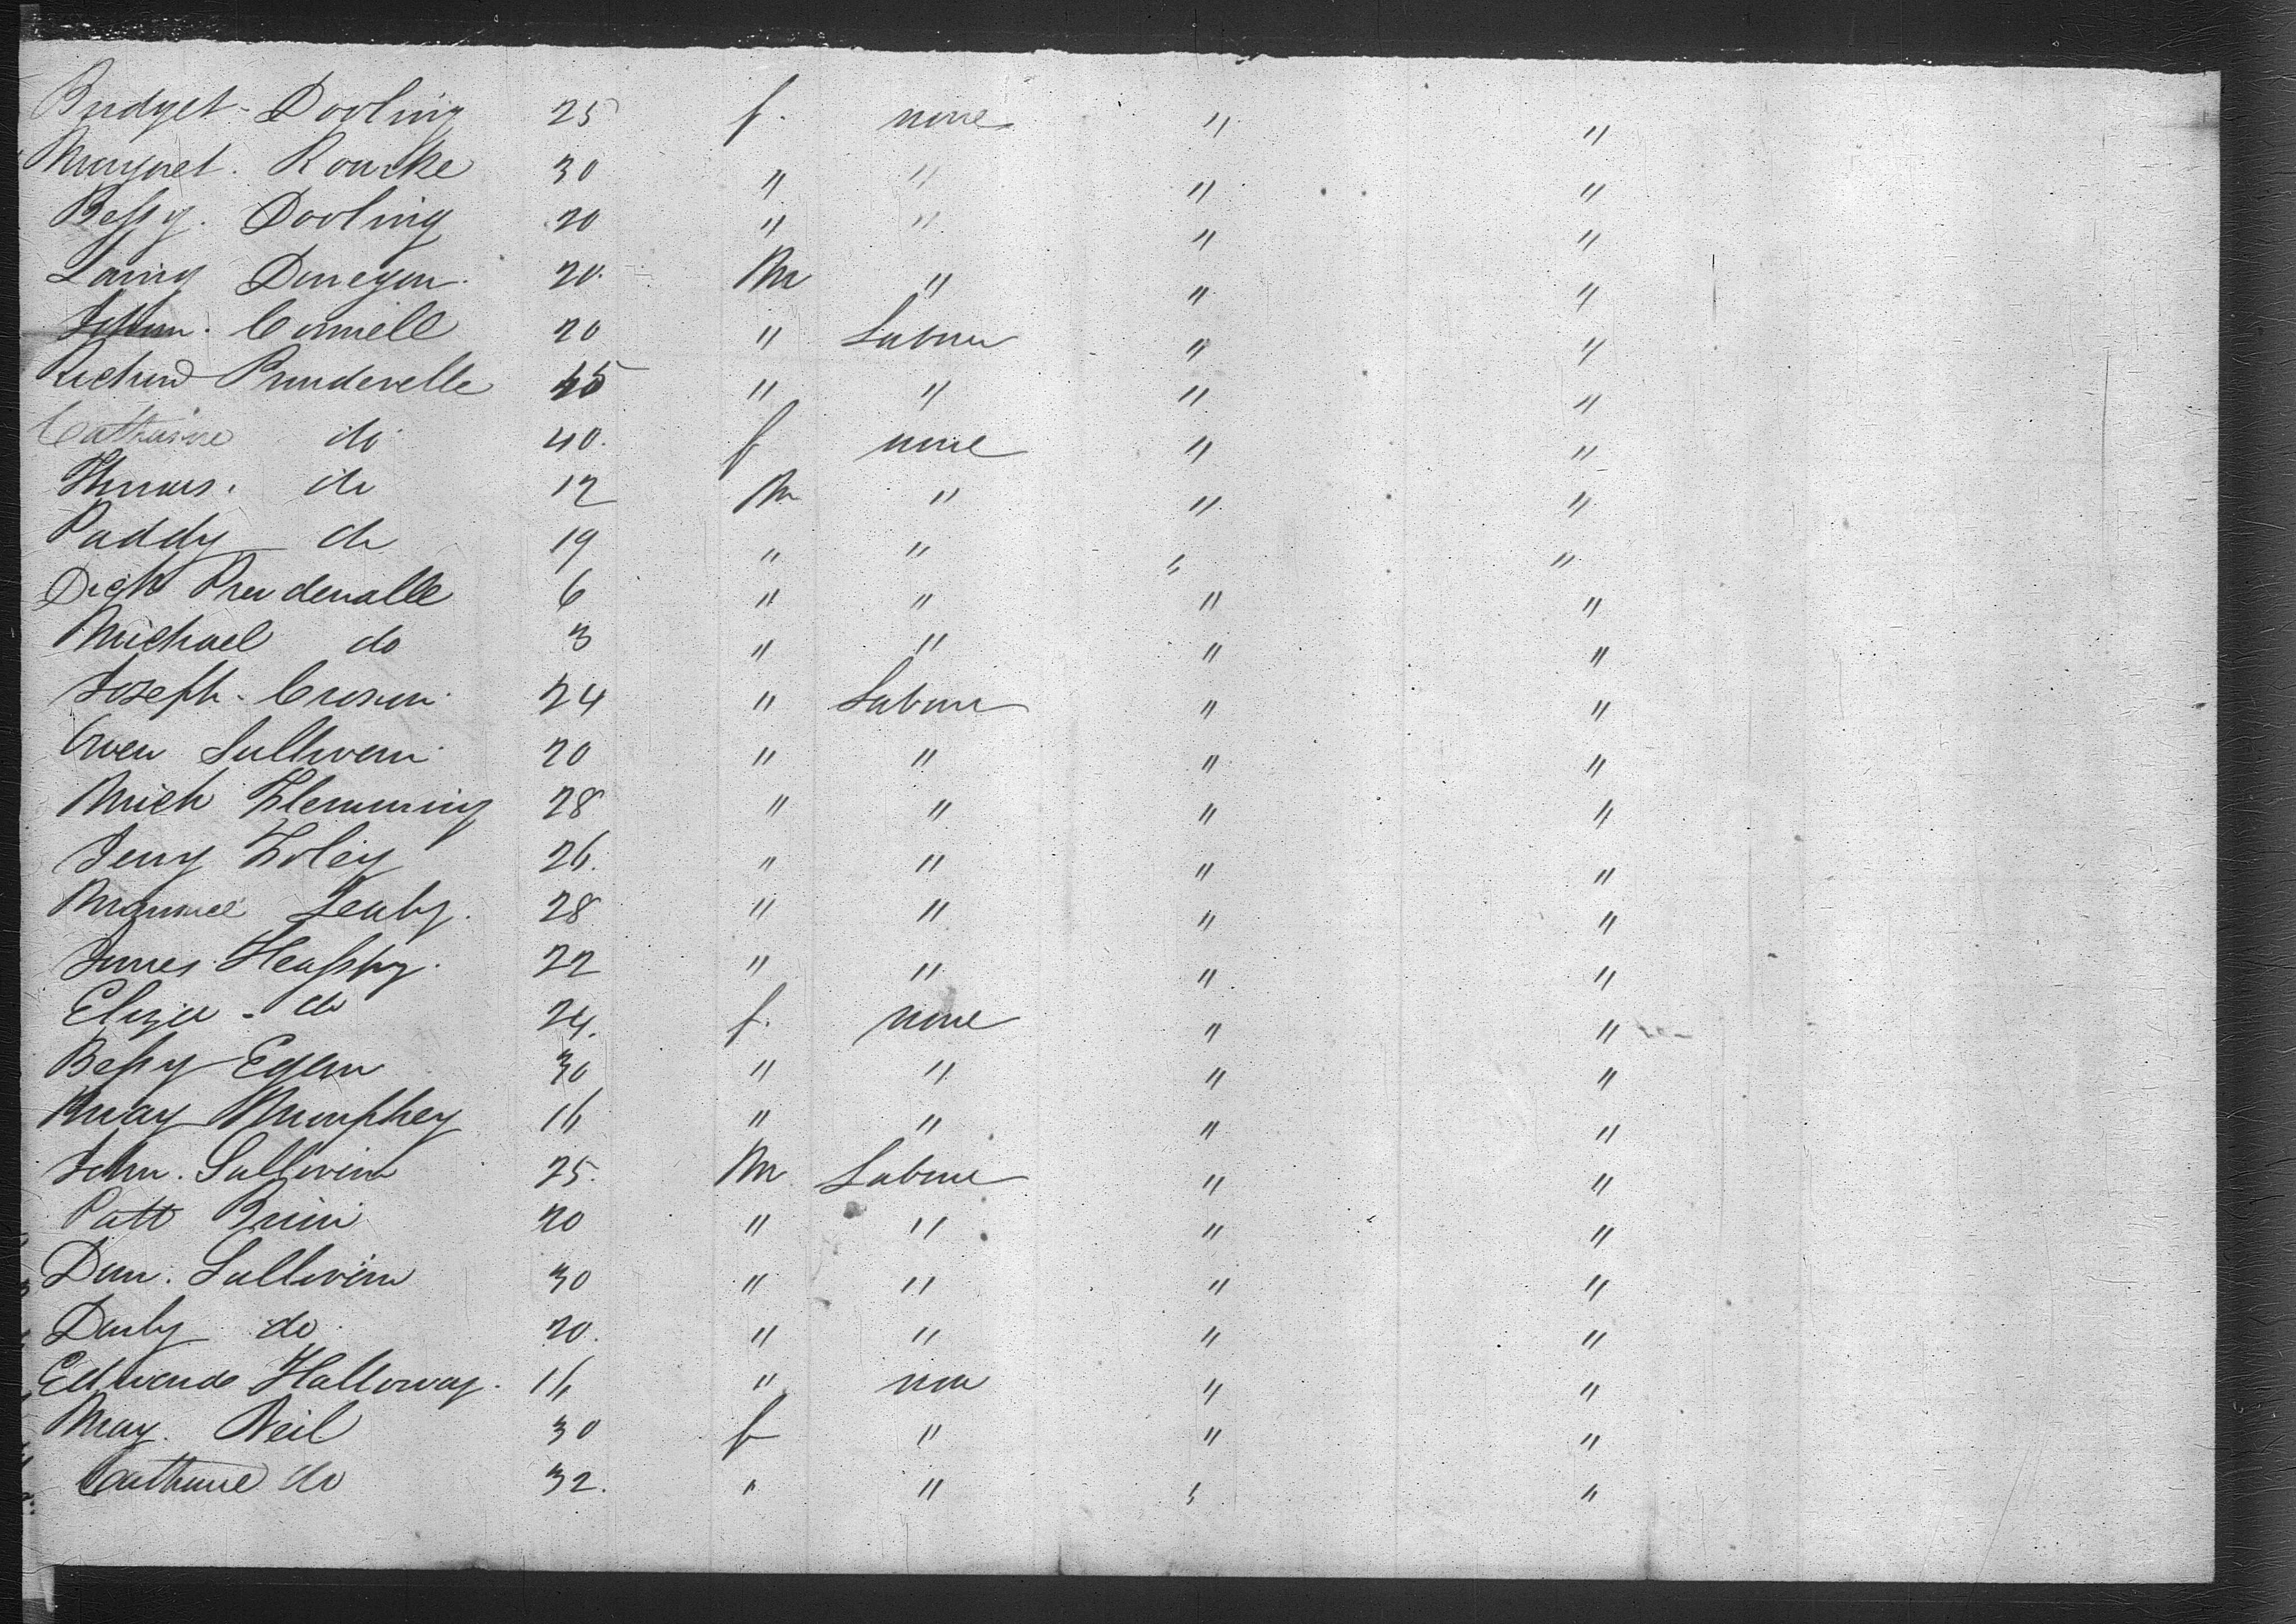 Bridget Dooling 25 f. none " "
Margret. Rourke 30 " " " "
Bessy. Dooling 20 " " " "
Donegan. 20. M " " "
John. Connell 20 " Labour " "
Richard Prendevelle 45 " " " "
Catharine do 40. f none " "
Thomas. do 12 M " " "
Paddy do 19 " " " "
Dick Prendevalle 6 " " " "
Michael do 3 " " " "
Joseph. Cronin 24 " Labour " "
Owen Sullivan 20 " " " "
Mich Flemming 28 " " " "
Jerry Foley 26. " " " "
Leahy. 28 " " " "
James Heaphy. 22 " " " "
Eliza do 24. f. none " "
Bessy Egan 30 " " " "
Mary Murphey 16 " " " "
John. Sullivan 25. M Labour " "
Patt Brien 20 " " " "
Dan. Sullivan 30 " " " "
Darby do 20. " " " "
Edward Halloway. 16 " non " "
Mary. Neil 30 f " " "
Catharine do 32. " " " "